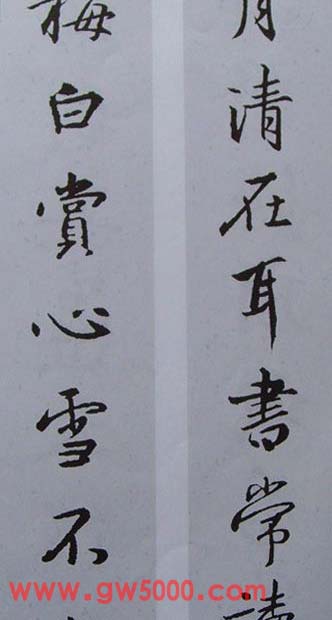 清在耳書常讀
梅白賞心雪不
www.gw5000.com